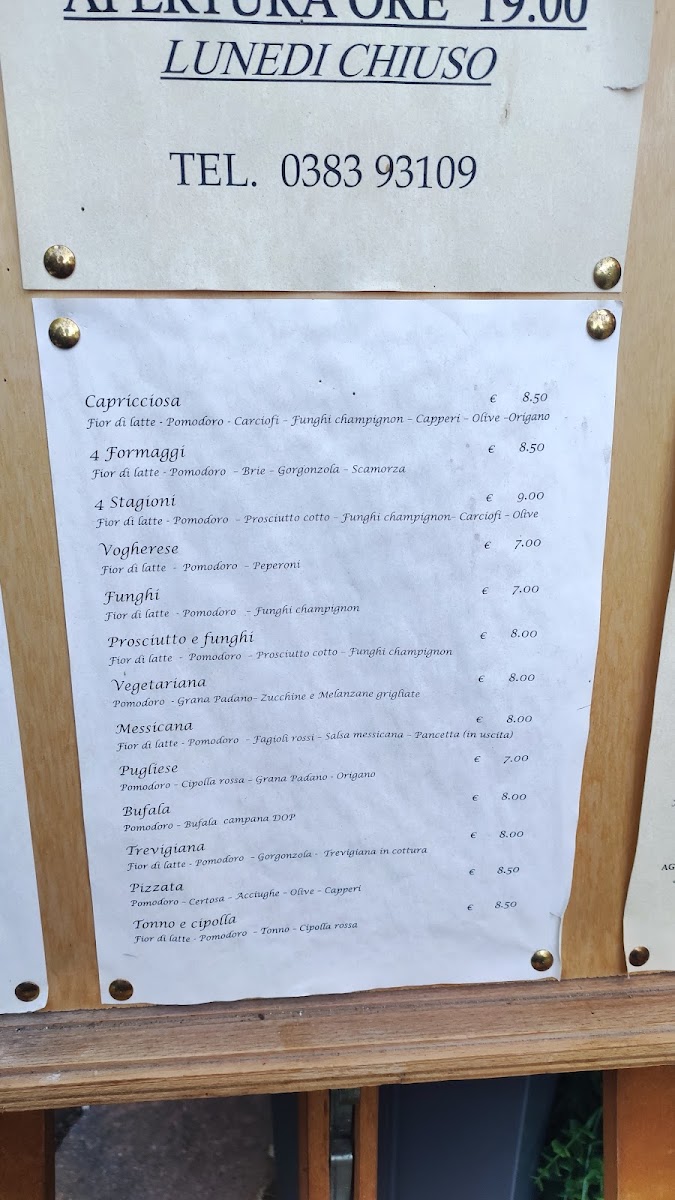 APERTURA ORE 19.00
LUNEDI CHIUSO
TEL. 0383 93109
Capricciosa € 8.50
Fior di latte - Pomodoro - Carciofi - Funghi champignon - Capperi - Olive -Origano
4 Formaggi € 8.50
Fior di latte - Pomodoro - Brie - Gorgonzola - Scamorza
4 Stagioni € 9.00
Fior di latte - Pomodoro - Prosciutto cotto - Funghi champignon- Carciofi - Olive
Vogherese € 7.00
Fior di latte - Pomodoro - Peperoni
Funghi € 7.00
Fior di latte - Pomodoro - Funghi champignon
Prosciutto e funghi € 8.00
Fior di latte - Pomodoro - Prosciutto cotto - Funghi champignon
Vegetariana € 8.00
Pomodoro - Grana Padano- Zucchine e Melanzane grigliate
Messicana € 8.00
Fior di latte - Pomodoro - Fagioli rossi - Salsa messicana - Pancetta (in uscita)
Pugliese € 7.00
Pomodoro - Cipolla rossa - Grana Padano - Origano
Bufala € 8.00
Pomodoro - Bufala campana DOP
Trevigiana € 8.00
Fior di latte - Pomodoro - Gorgonzola - Trevigiana in cottura
Pizzata € 8.50
Pomodoro - Certosa - Acciughe - Olive - Capperi
Tonno e cipolla € 8.50
Fior di latte - Pomodoro - Tonno - Cipolla rossa
AG